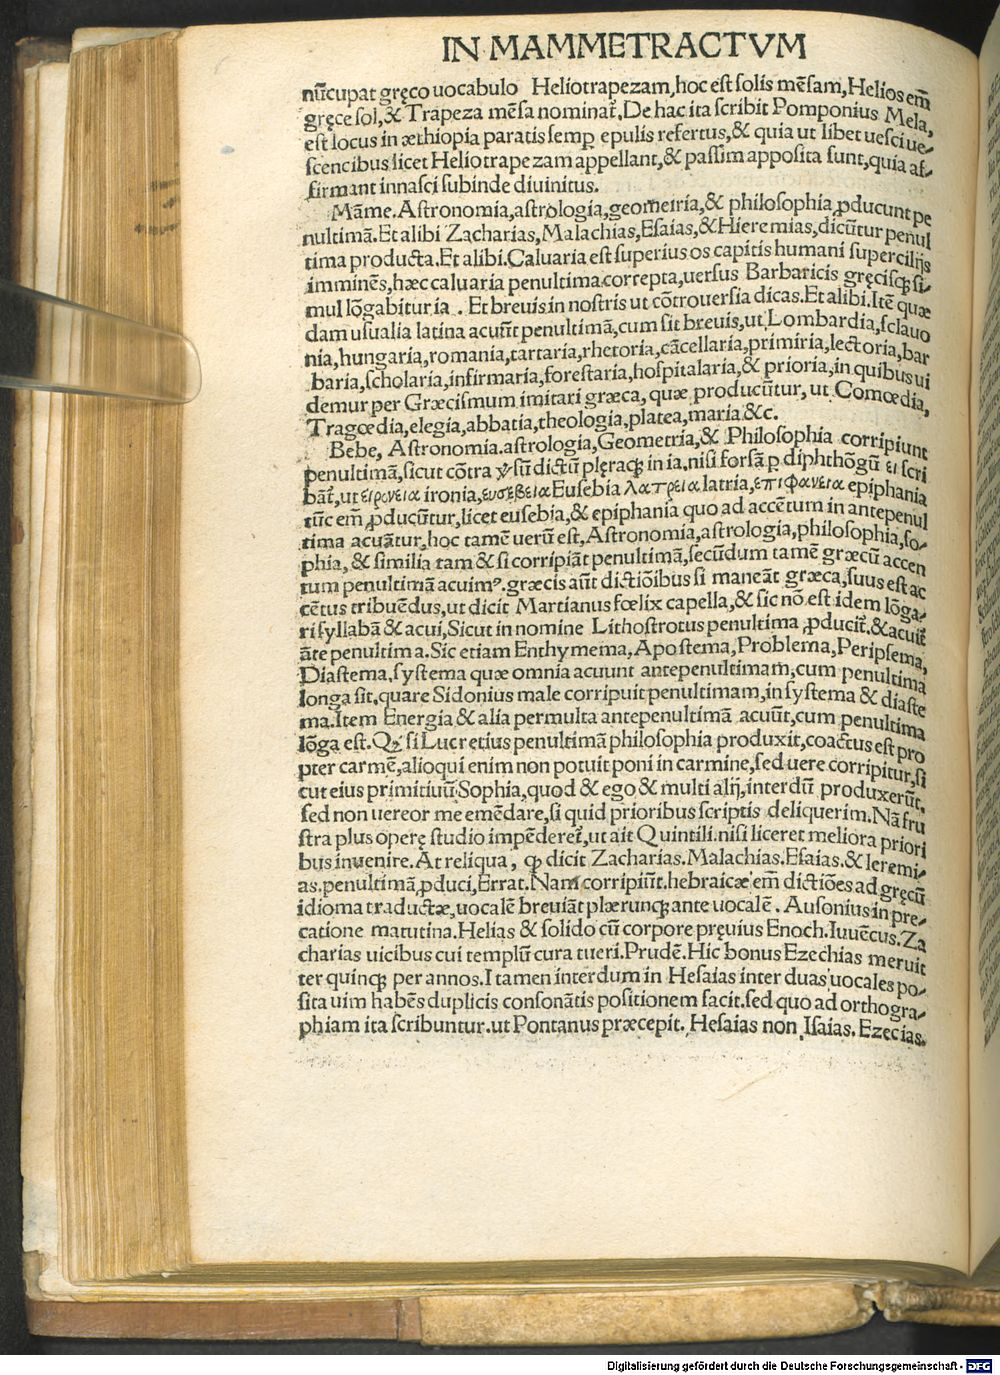 IN MAMMETRACTVM
nūcupat gręco uocabulo Heliotrapezam,hoc est solis mēsam,Helios em̄
gręce sol,& Trapeza mēsa nominat̄.De hac ita scribit Pomponius Mela,
est locus in æthiopia paratis semꝑ epulis refertus,& quia ut libet uesci ue-
scencibus licet Heliotrapezam appellant,& passim apposita sunt,quia af-
firmant innasci subinde diuinitus.
Māme.Astronomia,astrologia,geometria,& philosophia ꝓducunt pe
nultimā.Et alibi Zacharias,Malachias,Esaias,&Hieremias,dicūtur penul
tima producta.Et alibi.Caluaria est superius os capitis humani supercilijs
imminēs,hæc caluaria penultima correpta,uersus Barbaricis gręcisꝗ si-
mul lōgabitur ia . Et breuis in nostris ut cōtrouersia dicas.Et alibi.Itē quæ
dam usualia latina acuūt penultimā,cum sit breuis,ut Lombardia,sclauo
nia,hungaria,romania,tartaria,rhetoria,cācellaria,primiria,lectoria,bar
baria,scholaria,infirmaria,forestaria,hospitalaria,& prioria,in quibus ui
demur per Græcismum imitari græca, quæ producūtur, ut Comœdia,
Tragœdia,elegia,abbatia,theologia,platea,maria &c.
Bebe, Astronomia.astrologia,Geometria,& Philosophia corripiunt
penultimā,sicut cōtra ꝙ sū dictū plęraꝗ in ia.nisi forsā ꝑ diphthōgū ει scri
bāt̄,ut ειρονεια ironia,ευσεβεια Eusebia λατρεια latria,επιφανεια epiphania
tūc em̄ ꝓducūtur,licet eusebia,& epiphania quo ad accētum in antepenul
tima acuātur,hoc tamē uerū est,Astronomia,astrologia,philosophia,so-
phia, & similia tam & si corripiāt penultimā,secūdum tamē græcū accen
tum penultimā acuimꝰ.græcis aūt dictiōibus si maneāt græca,suus est ac
cētus tribuēdus,ut dicit Martianus fœlix capella,& sic nō est idem lōga-
ri syllabā & acui,Sicut in nomine Lithostrotus penultima ꝓducit̄.&acuit̄
āte penultima.Sic etiam Enthymema,Apostema,Problema,Peripsema,
Diastema,systema quæ omnia acuunt antepenultimam,cum penultima
longa sit,quare Sidonius male corripuit penultimam,in systema & diaste
ma.Item Energia & alia permulta antepenultimā acuūt,cum penultima
lōga est.Qꝫ si Lucretius penultimā philosophia produxit,coactus est pro
pter carmē,alioqui enim non potuit poni in carmine,sed uere corripitur,si
cut eius primitiuū Sophia,quod & ego & multi alij,interdū produxerūt.
sed non uereor me emēdare,si quid prioribus scriptis deliquerim.Nā fru
stra plus operę studio impēderet̄,ut ait Quintili.nisi liceret meliora priori
bus inuenire.At reliqua, ꝙ dicit Zacharias.Malachias.Esaias.& Ieremi-
as.penultimā ꝓduci,Errat.Nam corripiūt.hebraicæ em̄ dictiōes ad gręcū
idioma traductæ,uocalē breuiāt plærunꝗ ante uocalē. Ausonius in pre-
catione matutina.Helias & solido cū corpore pręuius Enoch.Iuuēcus.Za
charias uicibus cui templū cura tueri.Prudē.Hic bonus Ezechias meruit
ter quinꝗ per annos.Itamen interdum in Hesaias inter duas uocales po-
sita uim habēs duplicis consonātis positionem facit.sed quo ad orthogra-
phiam ita scribuntur.ut Pontanus præcepit. Hesaias non Isaias. Ezecias.
Digitalisierung gefördert durch die Deutsche Forschungsgemeinschaft - DFG